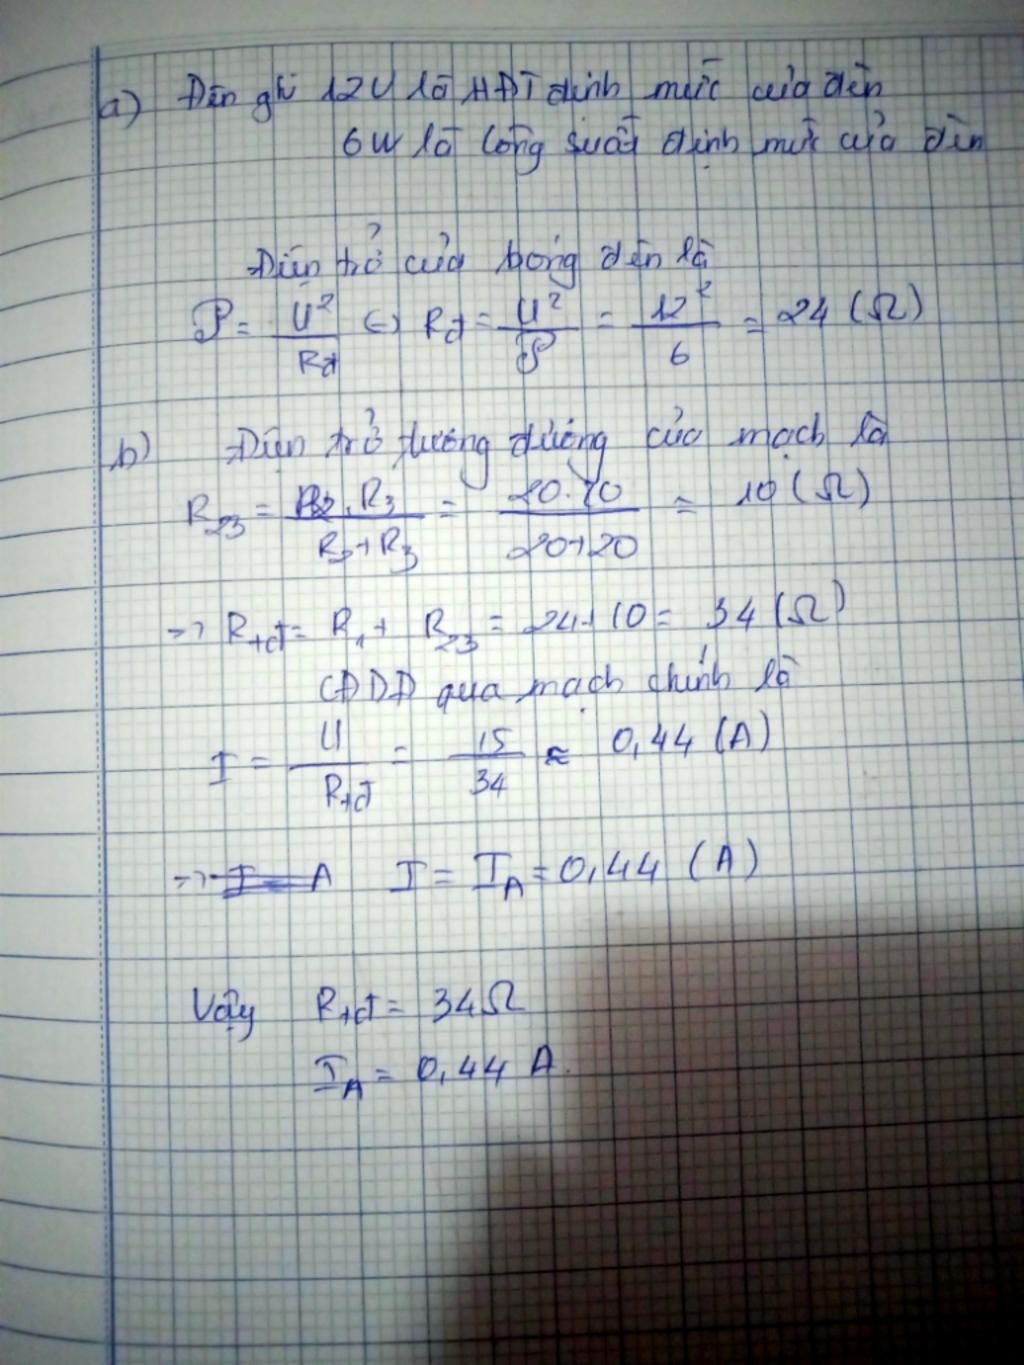 a) Đèn ghi 12V là HĐT định mức của đèn
6W là công suất định mức của đèn
Điện trở của bóng đèn là
P = U²/Rđ ⇔ Rđ = U²/P = 12²/6 = 24 (Ω)
b) Điện trở tương đương của mạch là
R23 = R2.R3/R2+R3 = 20.20/20+20 = 10 (Ω)
=> Rtđ = R1 + R23 = 24+10 = 34 (Ω)
CĐDĐ qua mạch chính là
I = U/Rtđ = 15/34 ≈ 0,44 (A)
=> I = IA = 0,44 (A)
Vậy Rtđ = 34Ω
IA = 0,44 A.